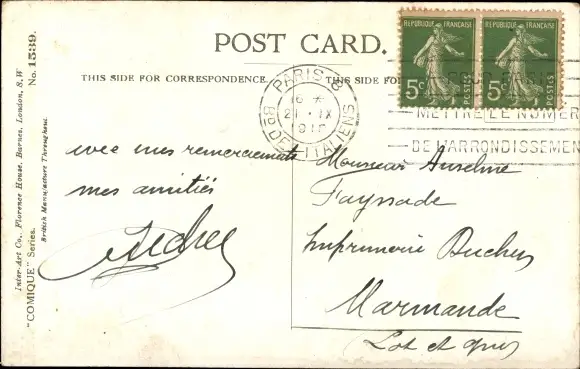 POST CARD.
THIS SIDE FOR CORRESPONDENCE. THIS SIDE FO
Inter-Art Co., Florence House, Barnes, London, S.W
"COMIQUE" Series. British Manufacture Throughout No. 1539.
REPUBLIQUE FRANÇAISE
5c POSTES
REPUBLIQUE FRANÇAISE
5c POSTES
PARIS 8
16 *
21 IX
Bd DES ITALIENS
METTRE LE NUMER
DE L'ARRONDISSEMEN
avec mes remerciements
mes amitiés
Monsieur Anselme
Fayssade
Imprimerie Duches
Marmande
(Lot et